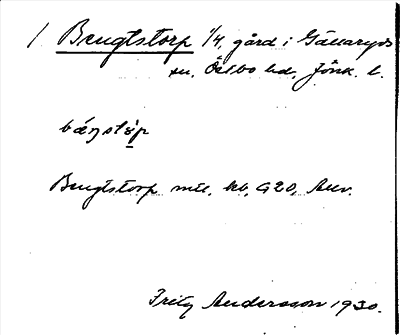 1. Bengtstorp 1/4, gård i Gällaryds
sn, Östbo hd, Jönk. l.
bæŋstǫp
Bengtstorp mtl. kb, G20, Anv.
Fritz Andersson 1930.